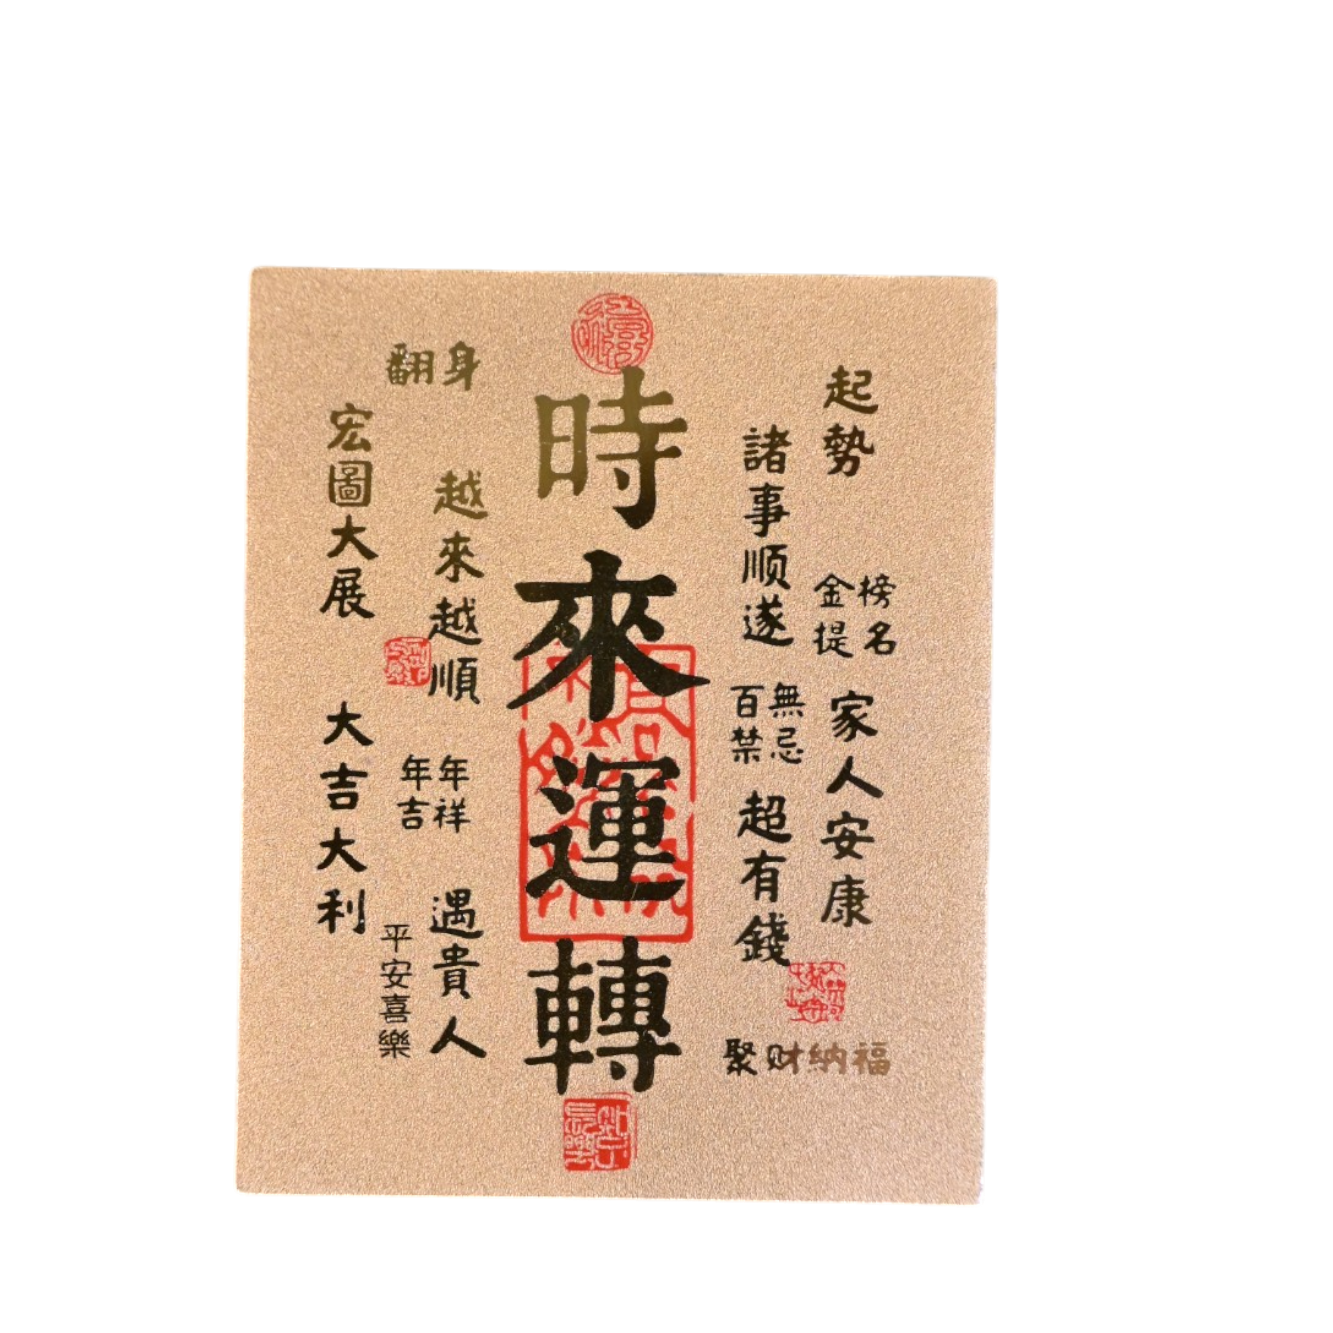 時來運轉
起勢
諸事順遂
金榜
提名
百無
禁忌
家人安康
超有錢
聚财納福
翻身
越來越順
宏圖大展
年年
吉祥
大吉大利
遇貴人
平安喜樂